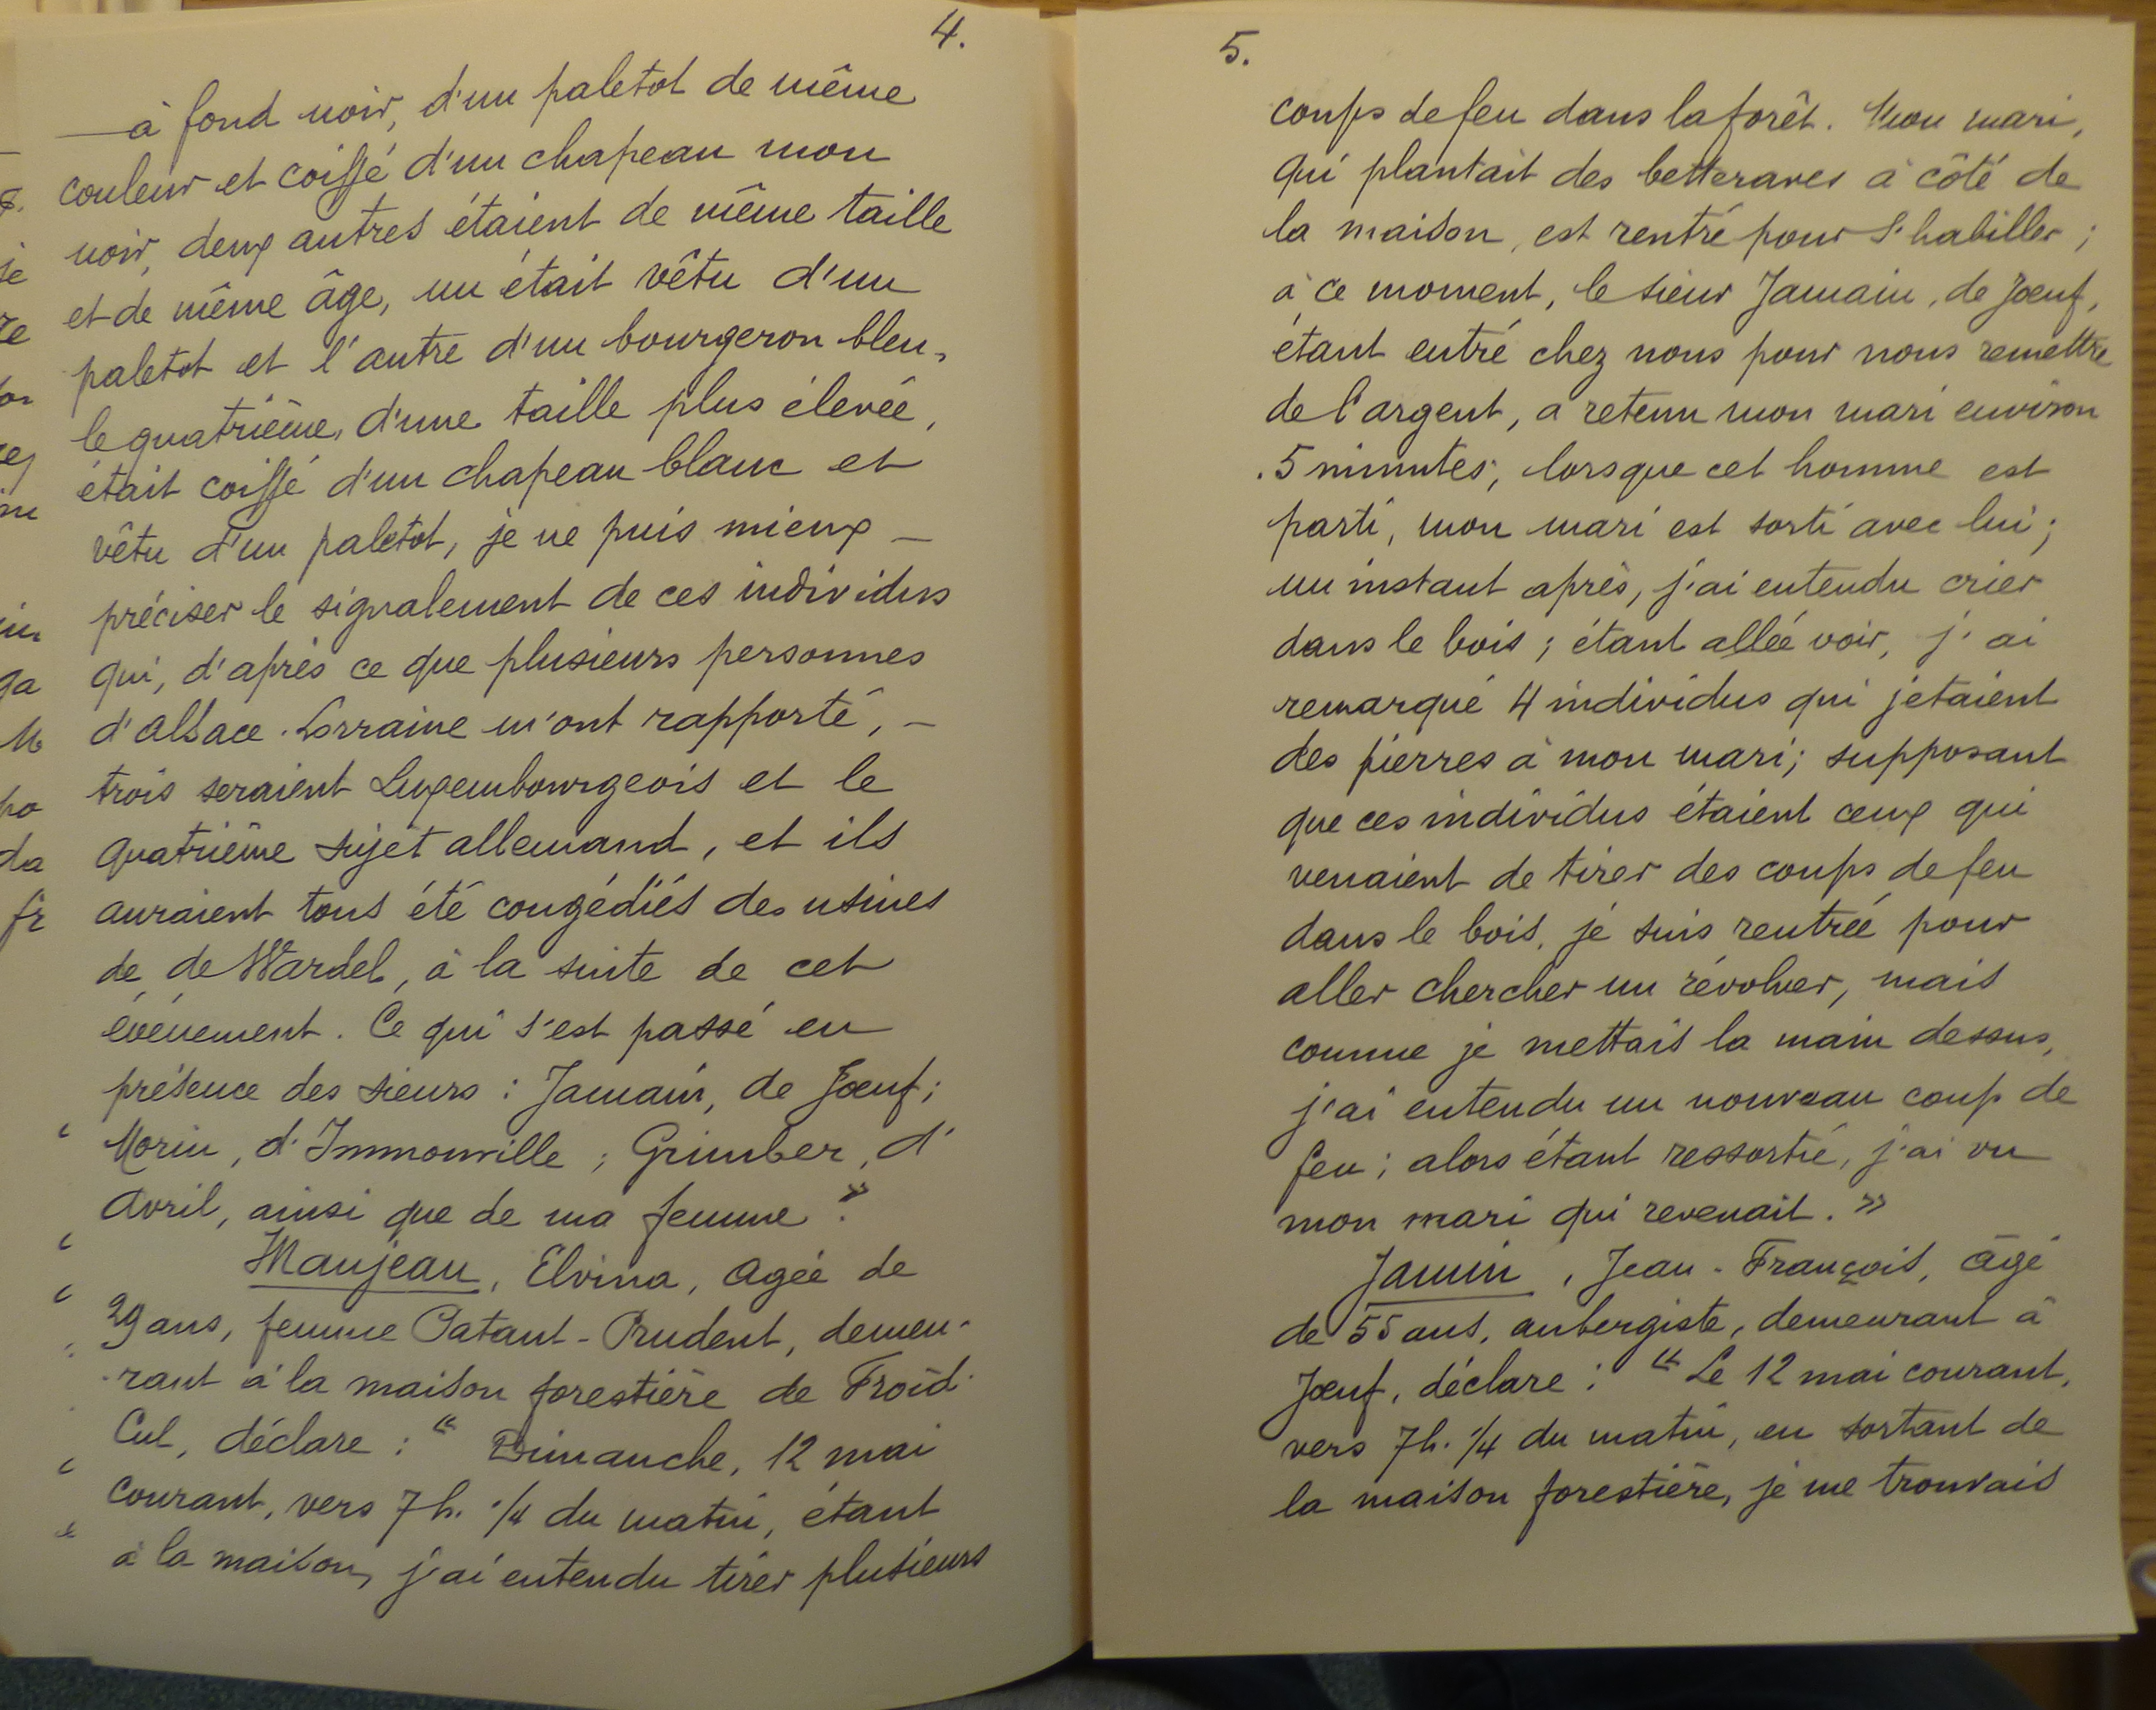 4.
à fond noir, d'un paletot de même
couleur et coiffé d'un chapeau mou
noir, deux autres étaient de même taille
et de même âge, un était vêtu d'un
paletot et l'autre d'un bourgeron bleu,
le quatrième, d'une taille plus élevée,
était coiffé d'un chapeau blanc et
vêtu d'un paletot, je ne puis mieux —
préciser le signalement de ces individus
qui, d'après ce que plusieurs personnes
d'Alsace-Lorraine m'ont rapporté, —
trois seraient Luxembourgeois et le
quatrième sujet allemand, et ils
auraient tous été congédiés des usines
de de Wardel, à la suite de cet
événement. Ce qui s'est passé en
présence des sieurs : Jamain, de Jœuf ;
Morin, d'Immonville ; Grimber, d'
Avril, ainsi que de ma femme. »
Maujean, Elvina, agée de
29 ans, femme Patant-Prudent, demeu-
rant à la maison forestière de Froid-
Cul, déclare : " Dimanche, 12 mai
courant, vers 7 h. 1/4 du matin, étant
à la maison, j'ai entendu tirer plusieurs
5.
coups de feu dans la forêt. Mon mari,
qui plantait des betteraves à côté de
la maison, est rentré pour s'habiller ;
à ce moment, le sieur Jamain, de Jœuf,
étant entré chez nous pour nous remettre
de l'argent, a retenu mon mari environ
5 minutes, lorsque cet homme est
parti, mon mari est sorti avec lui ;
un instant après, j'ai entendu crier
dans le bois ; étant allée voir, j'ai
remarqué 4 individus qui jetaient
des pierres à mon mari ; supposant
que ces individus étaient ceux qui
venaient de tirer des coups de feu
dans le bois, je suis rentrée pour
aller chercher un révolver, mais
comme je mettais la main dessus,
j'ai entendu un nouveau coup de
feu ; alors étant ressortie, j'ai vu
mon mari qui revenait. »
Jamin, Jean-François, âgé
de 55 ans, aubergiste, demeurant à
Jœuf, déclare : " Le 12 mai courant,
vers 7 h. 1/4 du matin, en sortant de
la maison forestière, je me trouvais